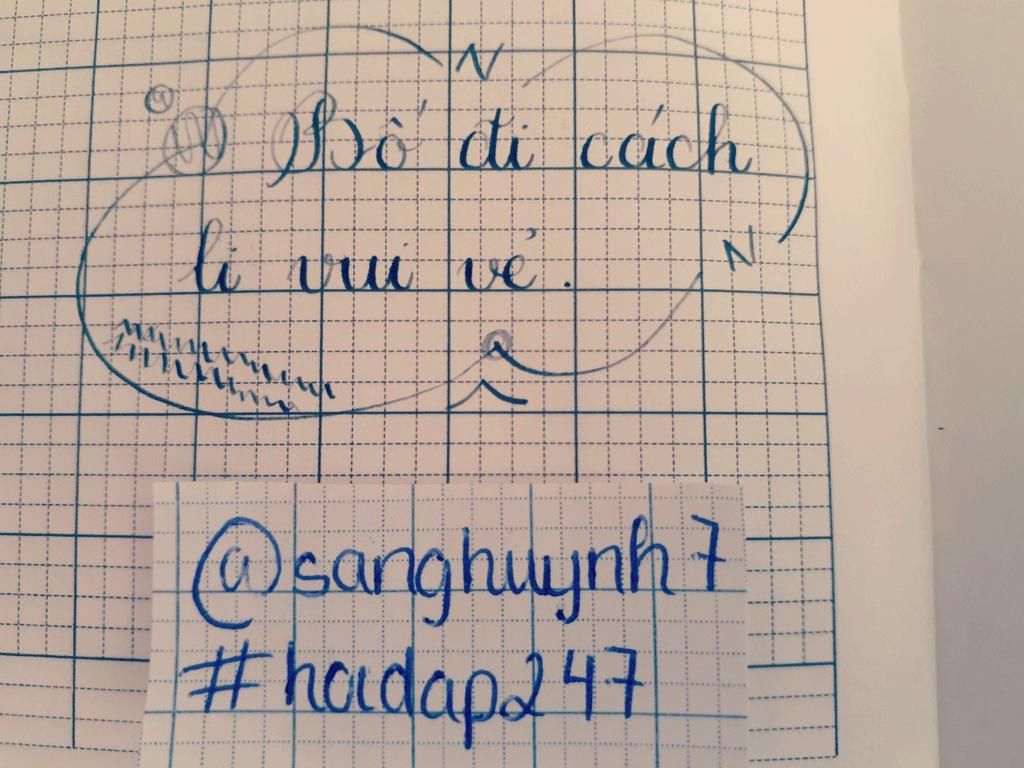 N
Bố đi cách
li vui vẻ.
N
@sanghuynh7
#hoidap247